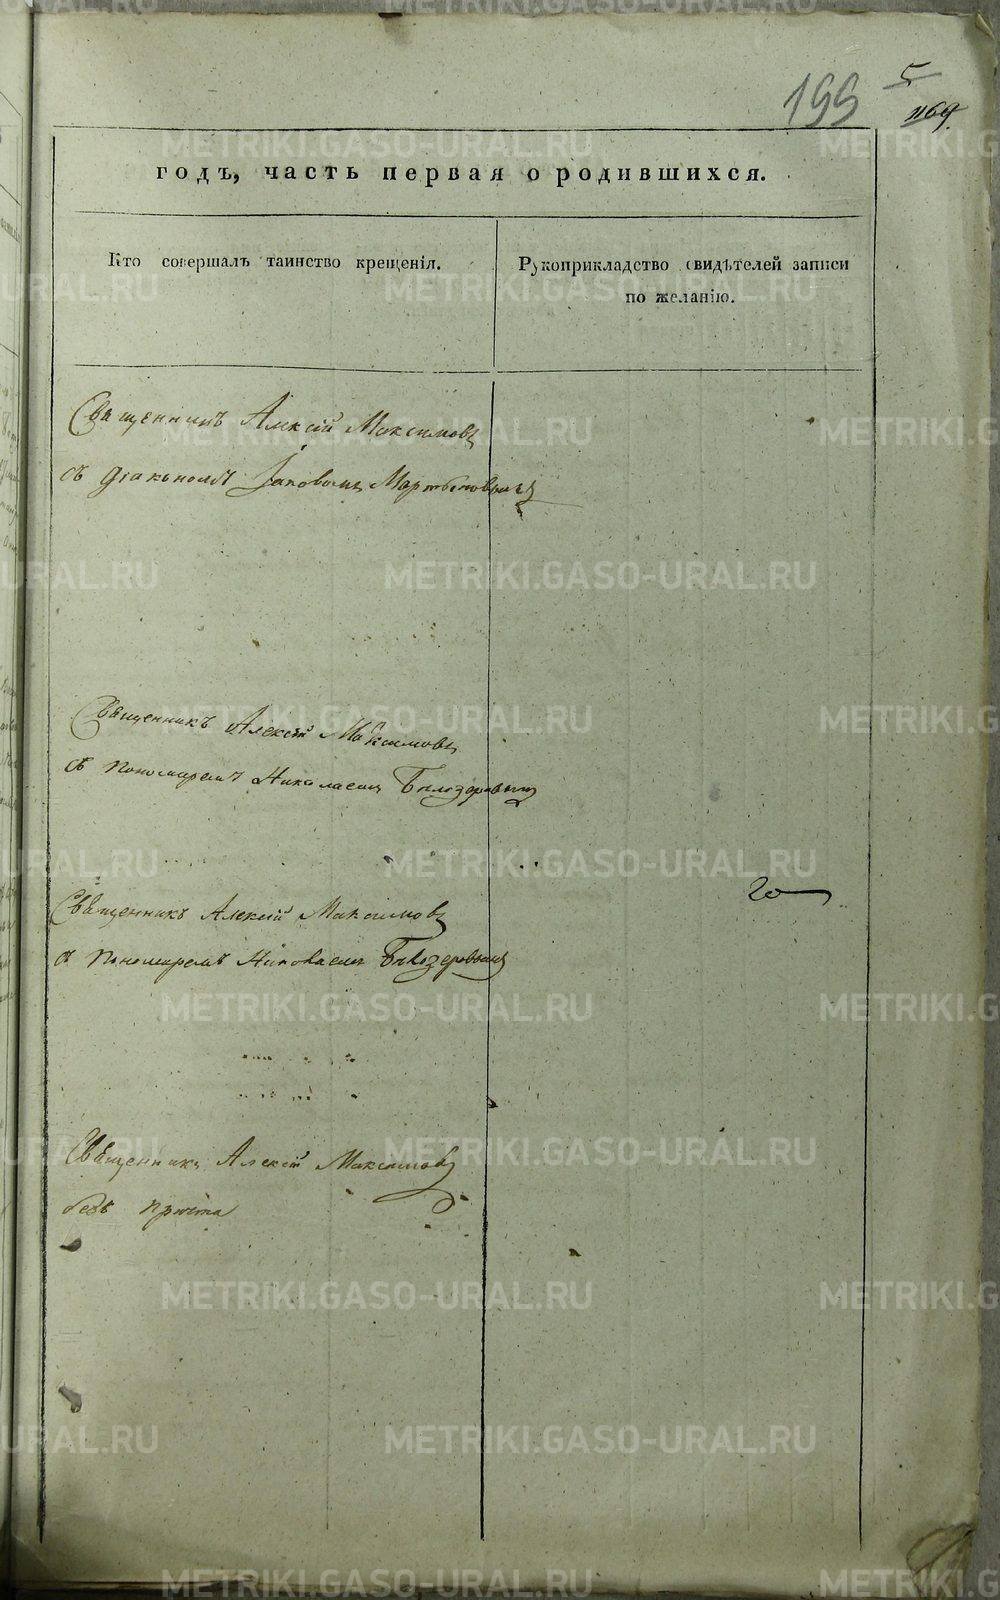 199
5
1169.
годъ, часть первая о родившихся.
Кто совершалъ таинство крещенія.
Рукоприкладство свидѣтелей записи
по желанію.
Священникъ Алексій Максимовъ
съ діакономъ Іаковомъ Мартыновымъ
Священникъ Алексій Максимовъ
съ пономаремъ Николаемъ Бѣлозеровымъ
20
Священникъ Алексій Максимовъ
съ пономаремъ Николаемъ Бѣлозеровымъ
Священникъ Алексій Максимовъ
безъ причта
METRIKI.GASO-URAL.RU